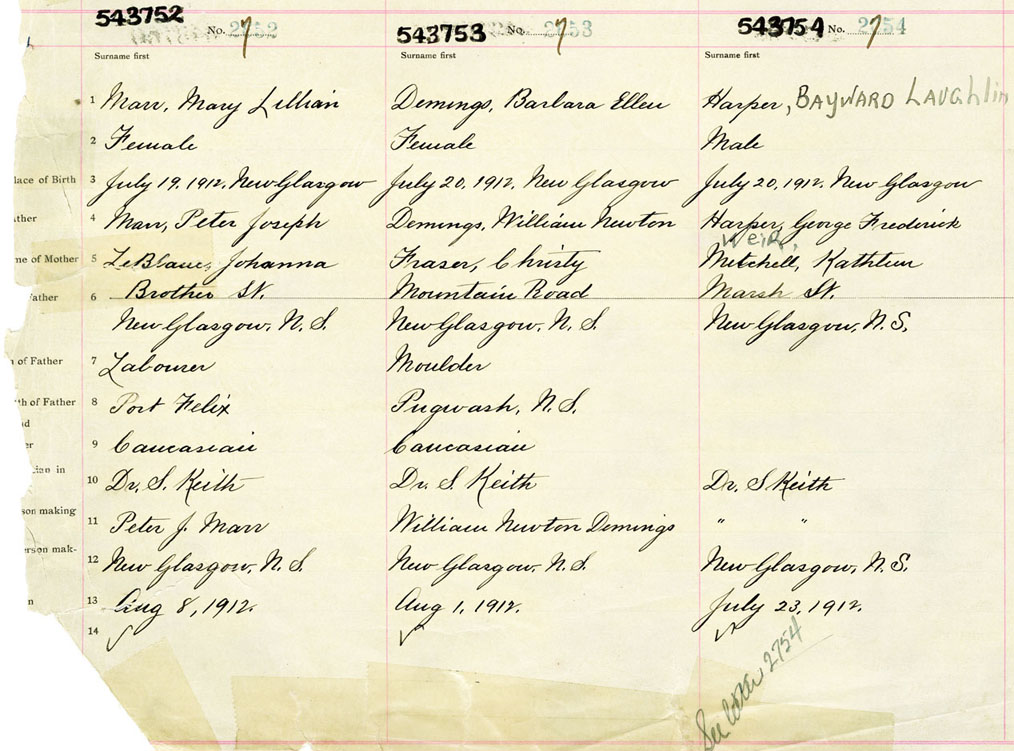 543752 No. 2752 7
543753 No. 2753 7
543754 No. 2754 7
Surname first Surname first Surname first
1 Marr, Mary Lillian Demings, Barbara Ellen Harper, BAYWARD LAUGHlin
2 Female Female Male
lace of Birth 3 July 19, 1912. New Glasgow July 20, 1912. New Glasgow July 20, 1912. New Glasgow
ther 4 Marr, Peter Joseph Demings, William Newton Harper, George Frederick
Weir,
me of Mother 5 LeBlanc, Johanna Fraser, Christy Mitchell, Kathleen
Father 6 Brother St. Mountain Road Marsh St.
New Glasgow, N.S. New Glasgow, N.S. New Glasgow, N.S.
of Father 7 Labourer Moulder
th of Father 8 Port Felix Pugwash, N.S.
d
er 9 Caucasian Caucasian
ian in
10 Dr. S. Keith Dr. S. Keith Dr. S Keith
son making
11 Peter J. Marr William Newton Demings " "
erson mak-
12 New Glasgow, N.S. New Glasgow, N.S. New Glasgow, N.S.
n 13 Aug 8, 1912. Aug 1, 1912. July 23, 1912.
14
See letter 2754